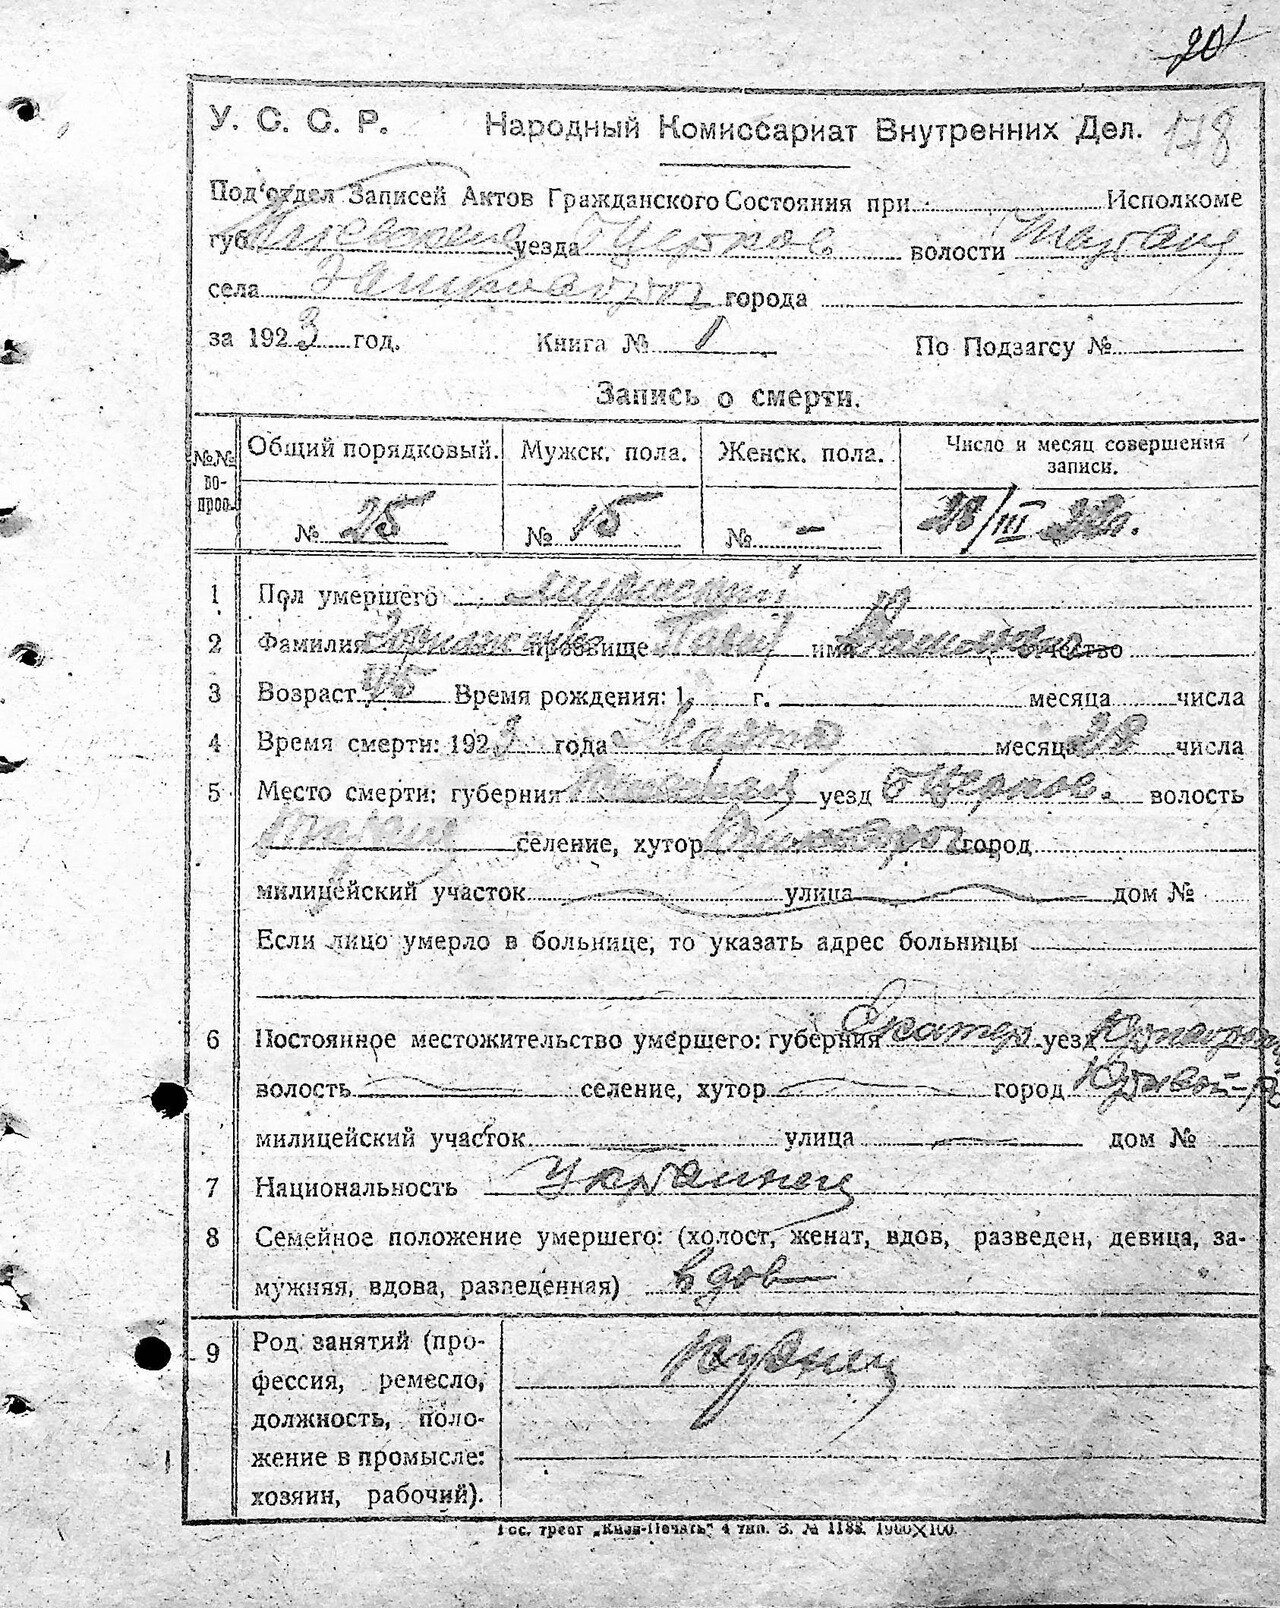 201
У. С. С. Р. Народный Комиссариат Внутренних Дел. 178
Под'отдел Записей Актов Гражданского Состояния при Исполкоме
губ. уезда Бцерков волости
села города
за 1923 год. Книга № 1 По Подзагсу №
Запись о смерти.
№№ вопроо. Общий порядковый. Мужск. пола. Женск. пола. Число и месяц совершения записи.
№ 25 № 15 № – 28/III 22г.
1 Пол умершего мужской
2 Фамилия прозвище Павел имя отчество
3 Возраст 45 Время рождения: 1 г. месяца числа
4 Время смерти: 1923 года Марта месяца 28 числа
5 Место смерти: губерния Киевская уезд бЦерков. волость
селение, хутор город
милицейский участок улица дом №
Если лицо умерло в больнице, то указать адрес больницы
6 Постоянное местожительство умершего: губерния Екатер уезд
волость селение, хутор город Кривой-Ро
милицейский участок улица дом №
7 Национальность Украинец
8 Семейное положение умершего: (холост, женат, вдов, разведен, девица, за-
мужняя, вдова, разведенная) вдов
9 Род занятий (про-
фессия, ремесло,
должность, поло-
жение в промысле:
хозяин, рабочий).
Гос. трест „Киев-Печать" 4 тип. З. № 1188. 1900×100.